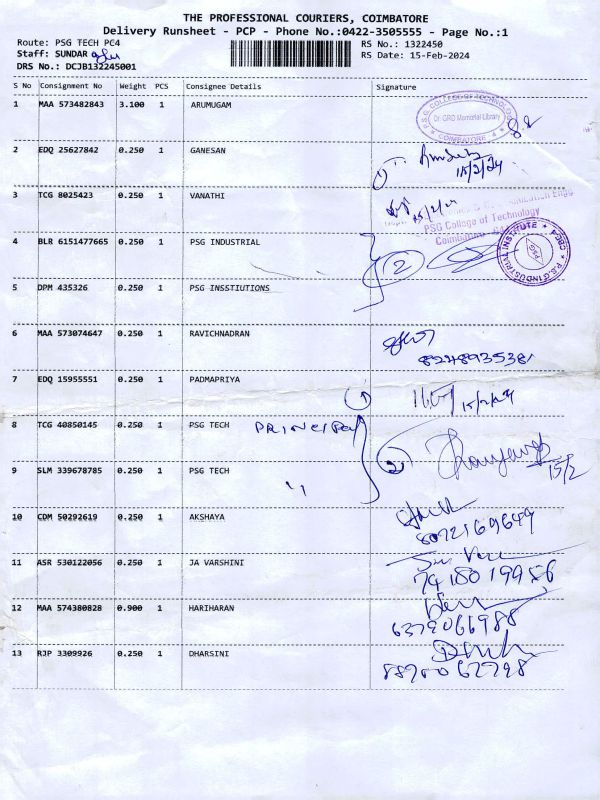 THE PROFESSIONAL COURIERS, COIMBATORE
Delivery Runsheet - PCP - Phone No.:0422-3505555 - Page No.:1
Route: PSG TECH PC4
RS No.: 1322450
Staff: SUNDAR
RS Date: 15-Feb-2024
DRS No.: DCJB132245001
S No Consignment No Weight PCS Consignee Details Signature
1 MAA 573482843 3.100 1 ARUMUGAM
P.S.G. COLLEGE OF TECHNOLOGY
Dr. GRD Memorial Library
COIMBATORE 4
2 EDQ 25627842 0.250 1 GANESAN
15/2/24
3 TCG 8025423 0.250 1 VANATHI
15/2/24
PSG College of Technology
4 BLR 6151477665 0.250 1 PSG INDUSTRIAL
2
P.S.G INDUSTRIAL INSTITUTE
5 DPM 435326 0.250 1 PSG INSSTIUTIONS
6 MAA 573074647 0.250 1 RAVICHNADRAN
8248935381
7 EDQ 15955551 0.250 1 PADMAPRIYA
15/2/24
8 TCG 40850145 0.250 1 PSG TECH
2
15/2
9 SLM 339678785 0.250 1 PSG TECH
"
10 CDM 50292619 0.250 1 AKSHAYA
8072169649
11 ASR 530122056 0.250 1 JA VARSHINI
7418019956
12 MAA 574380828 0.900 1 HARIHARAN
6379066988
13 RJP 3309926 0.250 1 DHARSINI